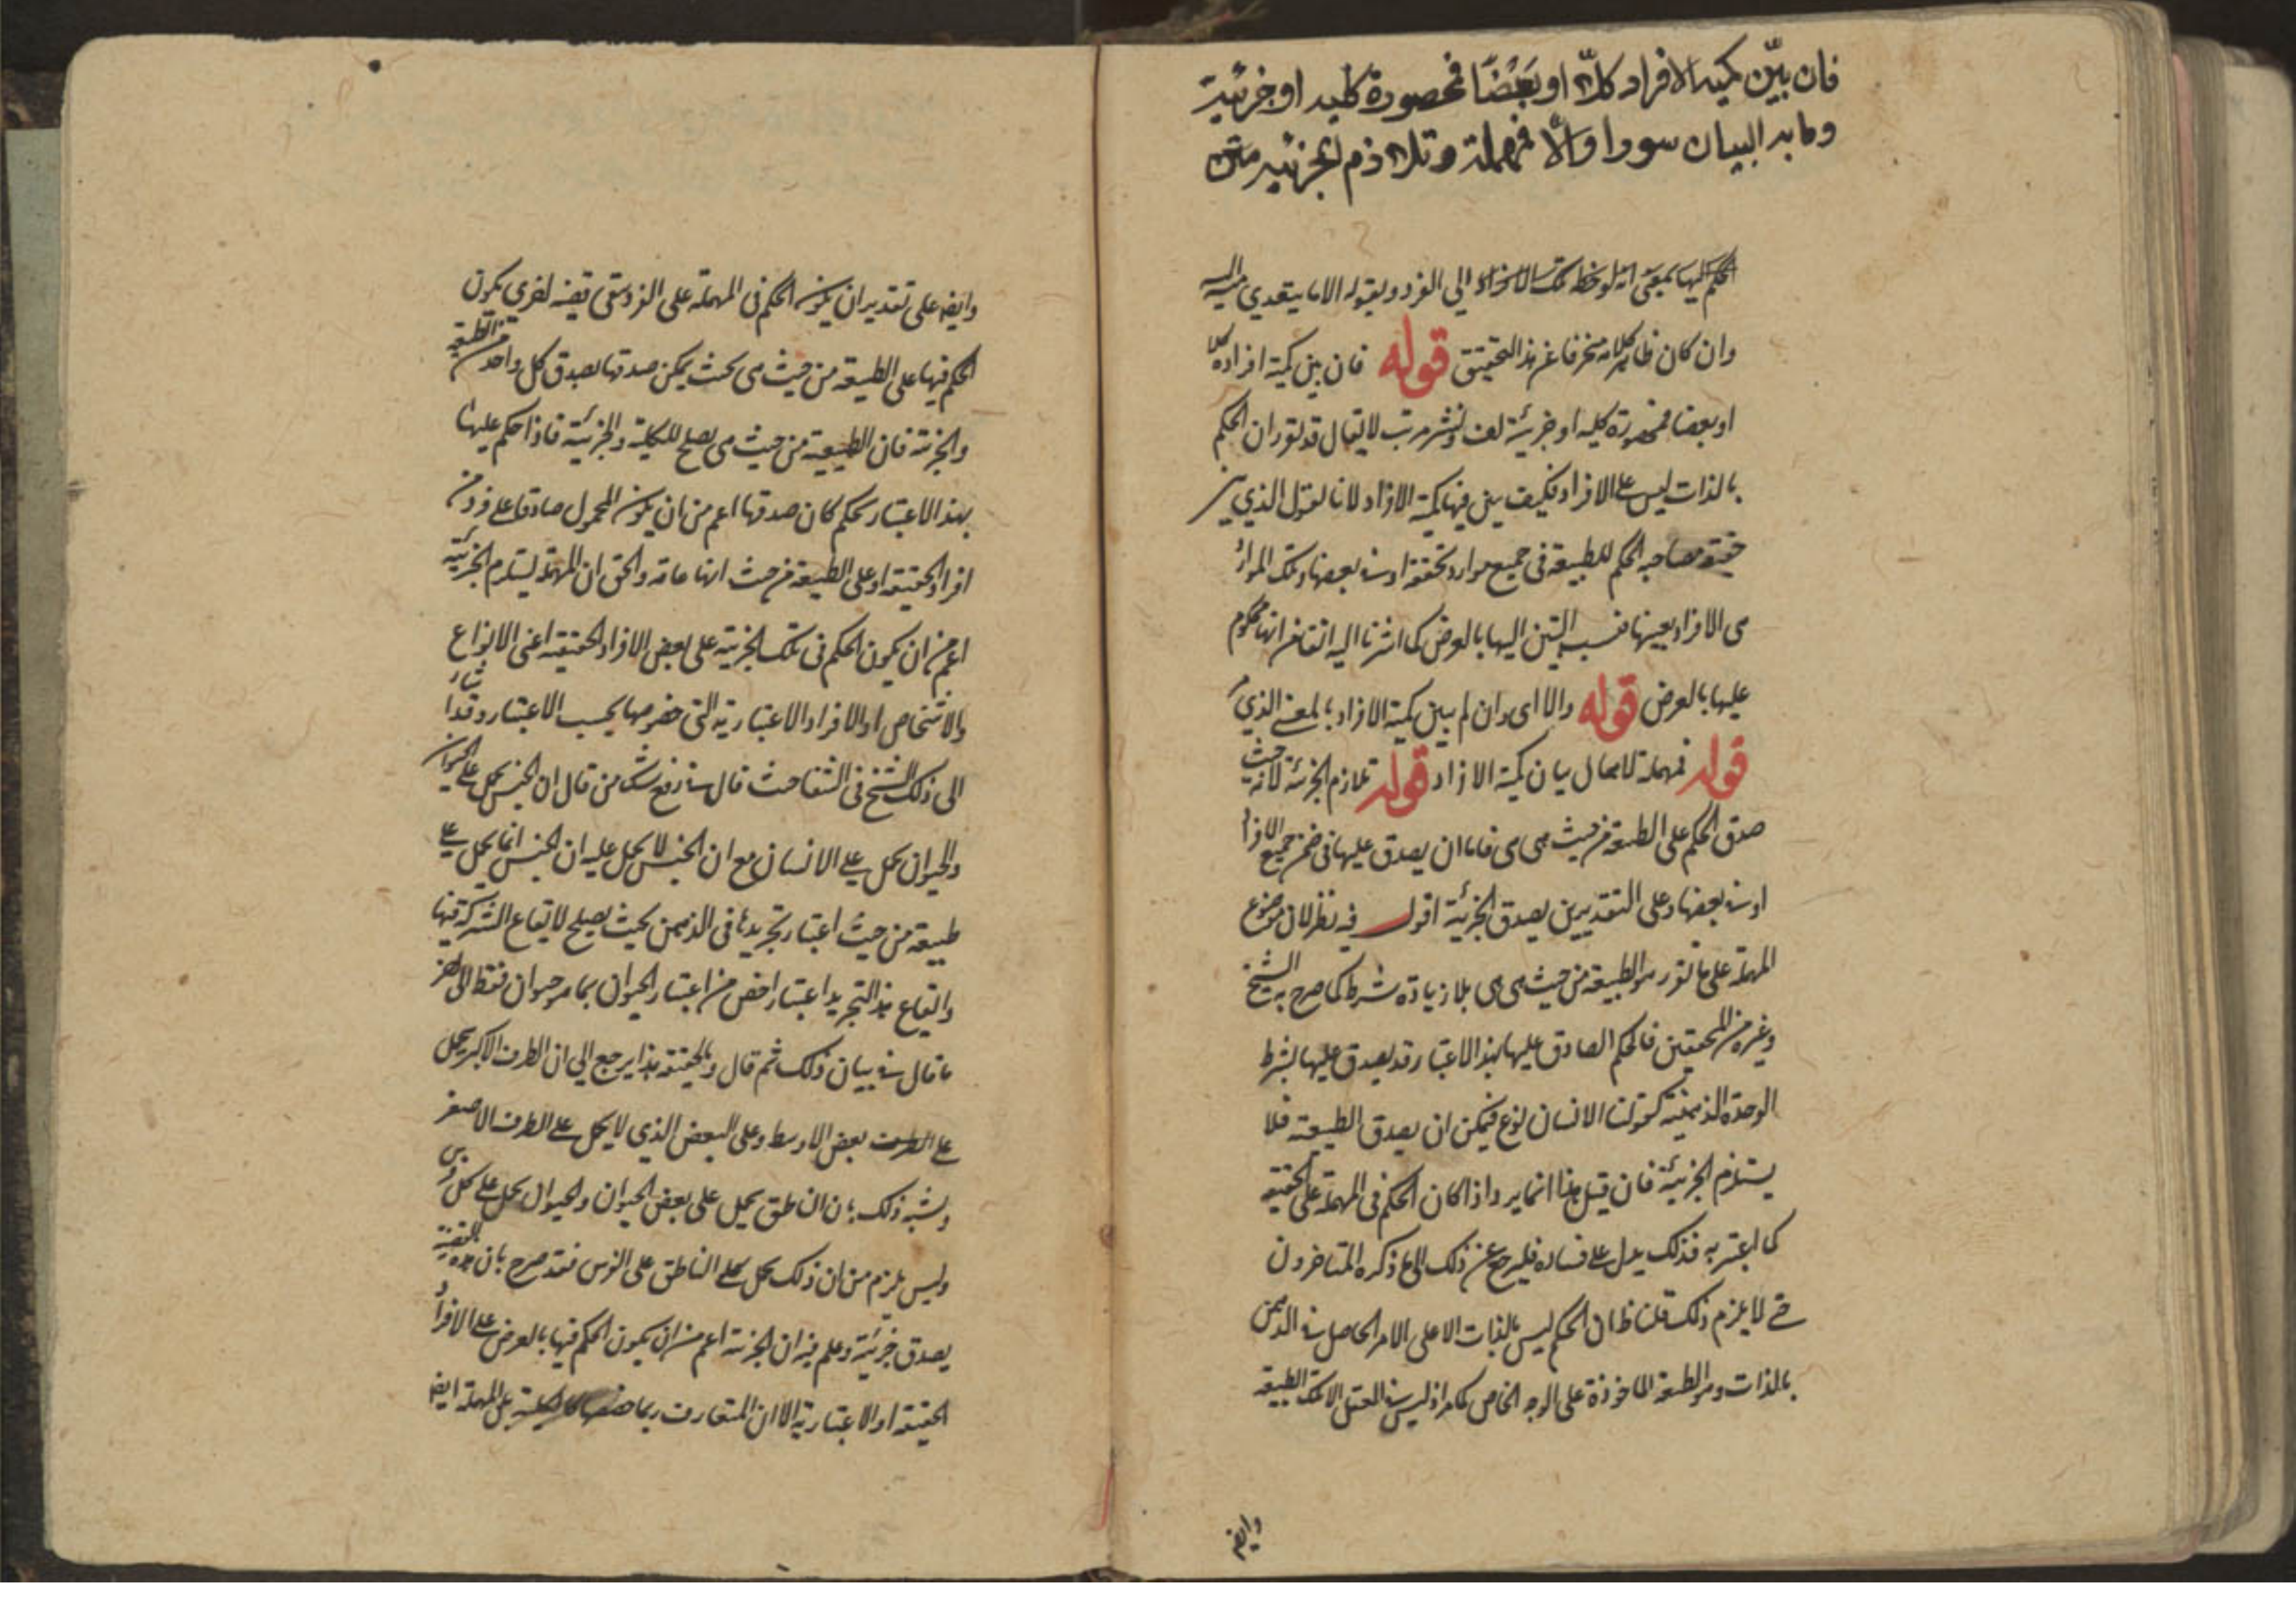 فان بيّن كميه الافراد كلّا او بعضًا فمحصورة كليه او جزئية
وما به البيان سورا والّا فمهملة وتلازم الجزئيه متن
الحكم اليها بمعنى انه لوحظ تلك الافراد الى الفرد وبقوله الا ما يتعدى منه اليه
وان كان ظاهر كلامه منحرفا عن هذا التحقيق قوله فان بين كمية افراده كلا
او بعضا فمحصورة كليه او جزئية لف ونشر مرتب لا يقال قد تقرر ان الحكم
بالذات ليس على الافراد فكيف يبين فيها كمية الافراد لانا نقول الذي يبين
حقيقة مصاحبه الحكم للطبيعة في جميع موارد تحققه او في بعضها وتلك الموارد
هى الافراد بعينها فنسب التبين اليها بالعرض كما اشرنا اليه انفا من انها محكوم
عليها بالعرض قوله والا اى وان لم يبين كمية الافراد بالمعنى الذي مر
قوله فمهملة لاهمال بيان كمية الافراد قوله تلازم الجزئية لانه حيث
صدق الحكم على الطبيعة من حيث هى هى فاما ان يصدق عليها في ضمن جميع الافراد
او في بعضها وعلى التقديرين يصدق الجزئية اقول فيه نظر لان موضوع
المهملة على ما تقرر هو الطبيعة من حيث هى هى بلا زيادة شرط كما صرح به الشيخ
وغيره من المحققين فالحكم الصادق عليها بهذا الاعتبار قد يصدق عليها بشرط
الوحدة الذهنية كقولنا الانسان نوع فيمكن ان يصدق الطبيعة فلا
يستلزم الجزئية فان قيل هذا انما يرد اذا كان الحكم في المهملة على الحقيقة
كما اعتبر به فذلك يدل على فساده فليرجع عن ذلك الى ما ذكره المتاخرون
حتى لا يلزم ذلك قلنا ظ ان الحكم ليس بالذات الا على الامر الحاصل في الذهن
بالذات وهو الطبيعة الماخوذة على الوجه الخاص كما مر اذ ليس في العقل الا تلك الطبيعة
وايضا
وايضا على تقدير ان يكون الحكم في المهملة على الفرد يبقى قضية اخرى يكون
الحكم فيها على الطبيعة من حيث هى بحيث يمكن صدقها بصدق كل واحد من الطبيعية
والجزئية فان الطبيعة من حيث هى يصلح للكلية والجزئية فاذا حكم عليها
بهذا الاعتبار بحكم كان صدقها اعم من ان يكون المحمول صادقا على فرد من
افراد الحقيقة او على الطبيعة من حيث انها عامة والحق ان المهملة يستلزم الجزئية
اعم من ان يكون الحكم في تلك الجزئية على بعض الافراد الحقيقية اعنى الانواع
والاشخاص او الافراد الاعتبارية التى خصوصها بحسب الاعتبار وقد اشار
الى ذلك الشيخ في الشفا حيث قال في دفع شك من قال ان الجنس يحمل على الحيوان
والحيوان يحمل على الانسان مع ان الجنس لا يحمل عليه ان الجنس انما يحمل على
طبيعة من حيث اعتبار تجريدها في الذهن بحيث يصلح لايقاع الشركة فيها
وايقاع هذا التجريد اعتبار اخص من اعتبار الحيوان بما هو حيوان فقط الى اخر
ما قال في بيان ذلك ثم قال وبالحقيقة هذا يرجع الى ان الطرف الاكبر يحمل
على بعض الاوسط وعلى البعض الذي لا يحمل على الطرف الاصغر
ويشبه ذلك بان الناطق يحمل على بعض الحيوان والحيوان يحمل على كل فرس
وليس يلزم من ان ذلك يحمل على الناطق على الفرس فقد صرح بان هذه القضية
يصدق جزئية وعلم منه ان الجزئية اعم من ان يكون الحكم فيها بالعرض على الافراد
الحقيقة او الاعتبارية الا ان المتعارف ربما خصها بل المهملة ايضا